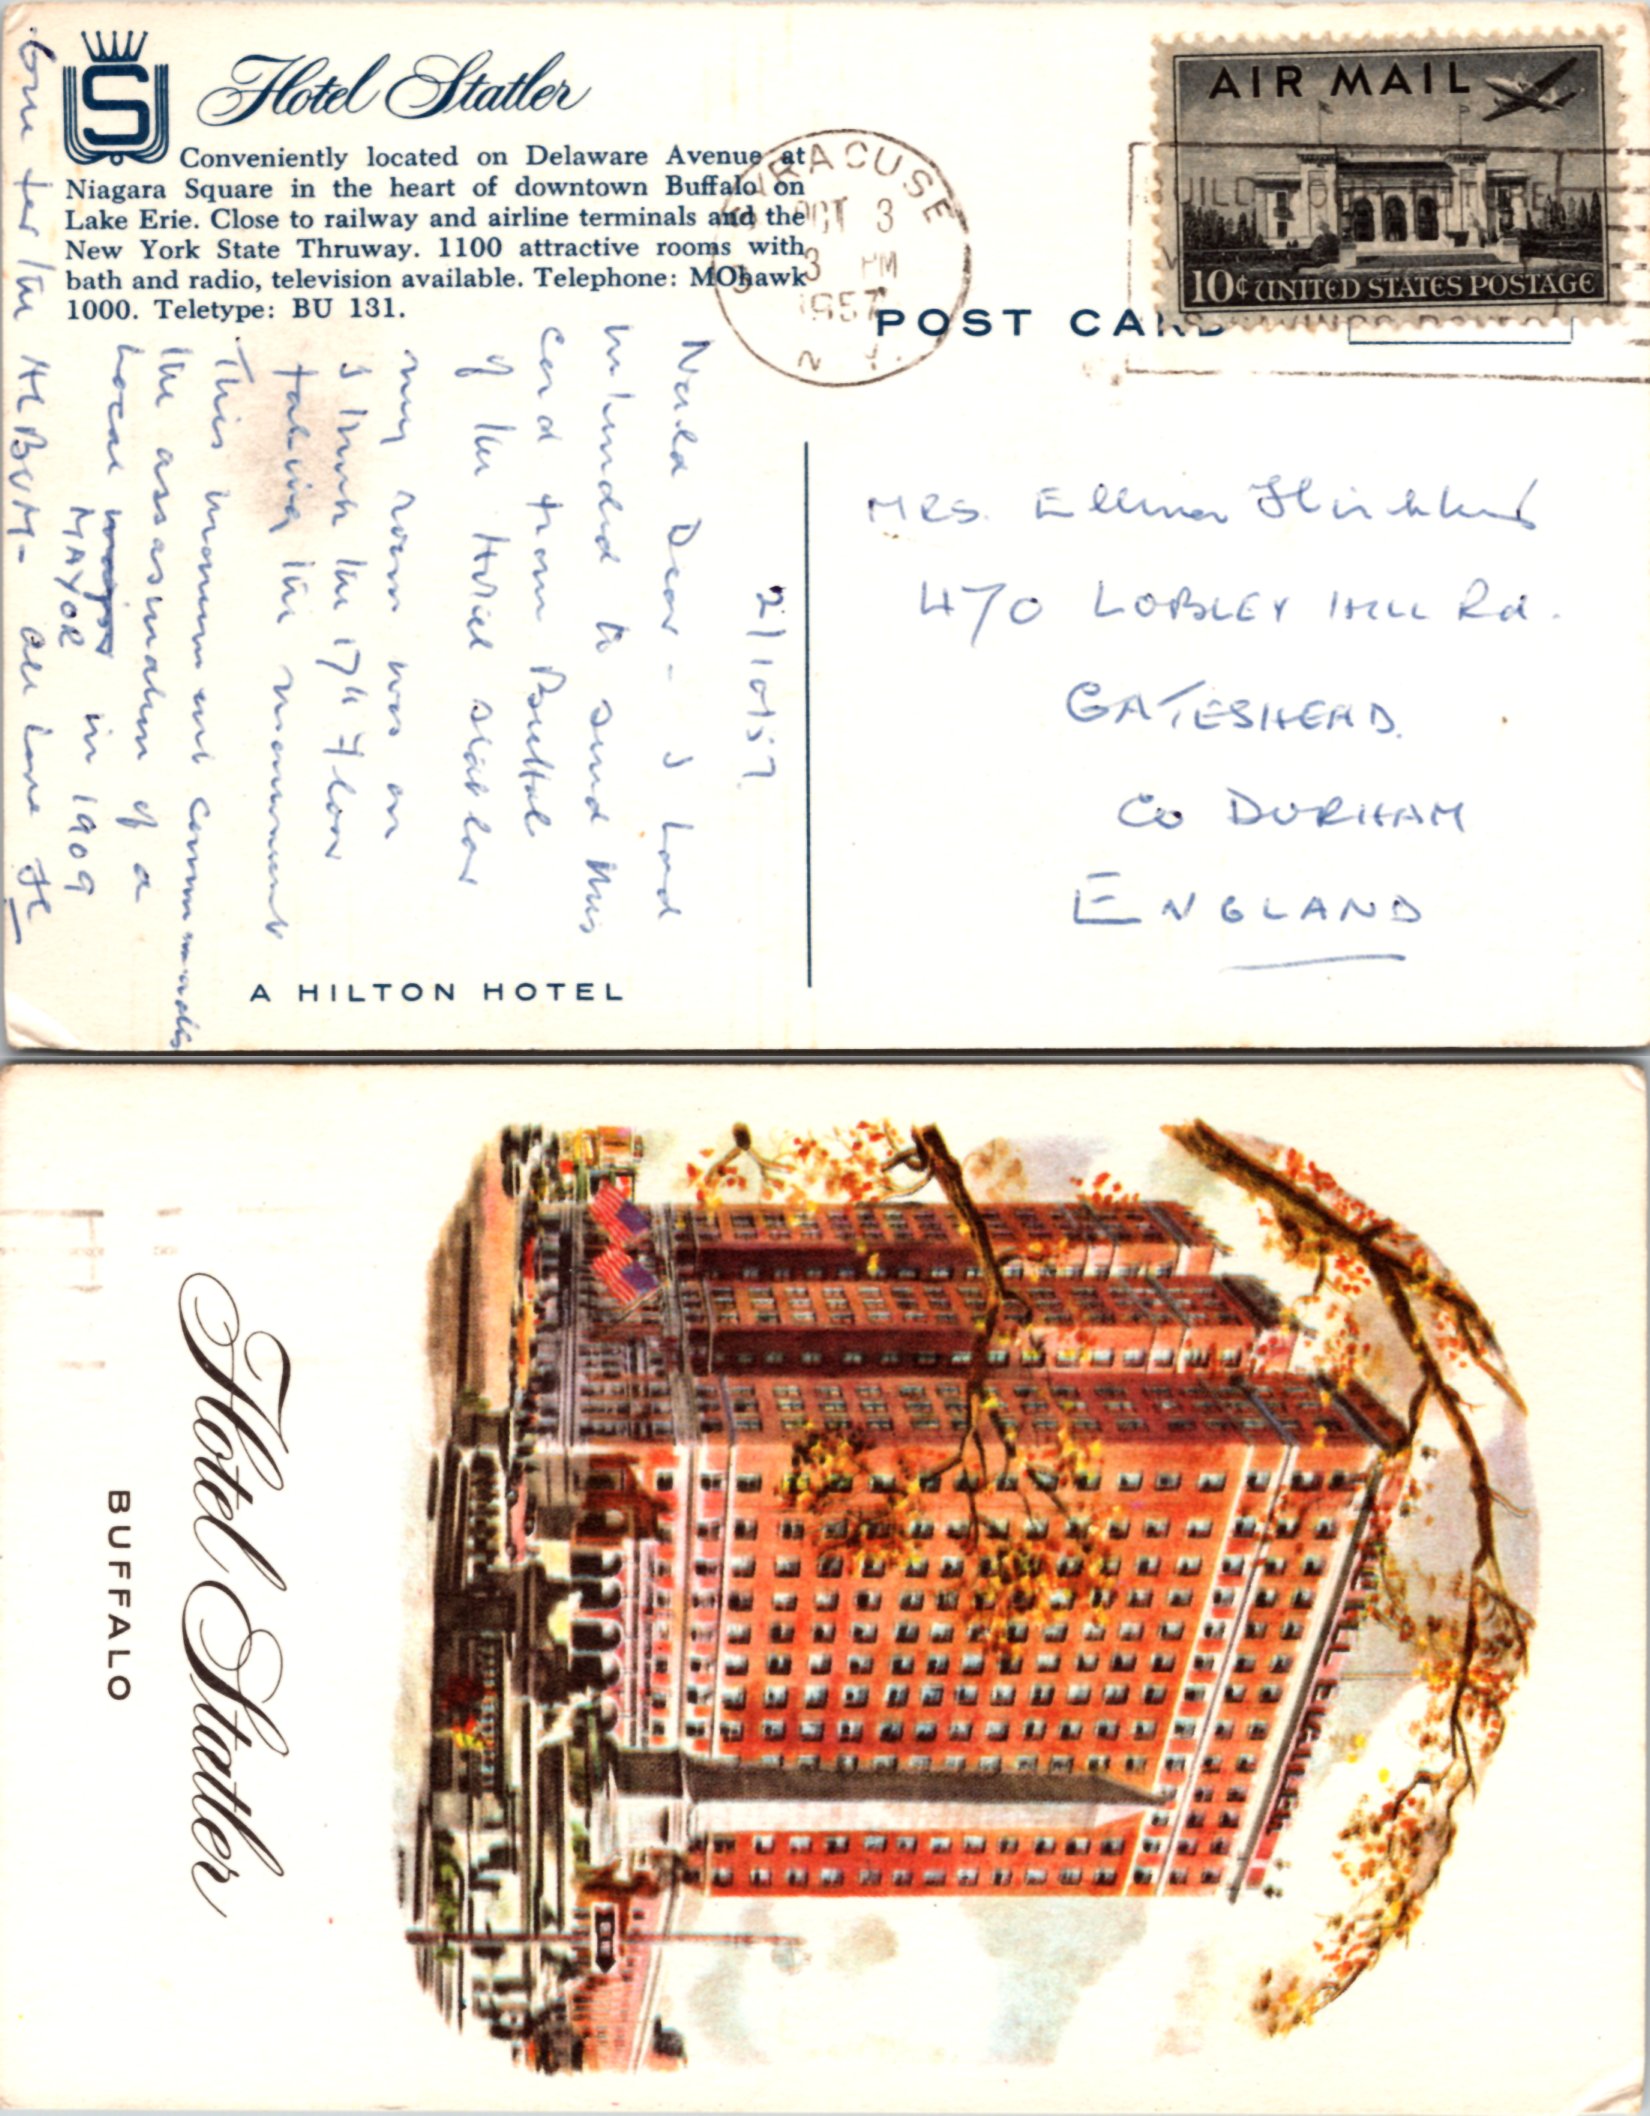 S
Hotel Statler
Conveniently located on Delaware Avenue at
Niagara Square in the heart of downtown Buffalo on
Lake Erie. Close to railway and airline terminals and the
New York State Thruway. 1100 attractive rooms with
bath and radio, television available. Telephone: MOhawk
1000. Teletype: BU 131.
SYRACUSE
OCT 3
3 PM
1957
N Y.
AIR MAIL
10¢ UNITED STATES POSTAGE
POST CARD
2/10/57
Dear - I had
intended to send this
card from Buffalo
of the Hotel Statler
my room was on
I think the 17th Floor
facing the monument
This monument commemorates
the assasination of a
Local
MAYOR in 1909
One for the ALBUM - all love
MRS.
470 LOBLEY HILL Rd.
GATESHEAD.
Co DURHAM
ENGLAND
A HILTON HOTEL
Hotel Statler
BUFFALO